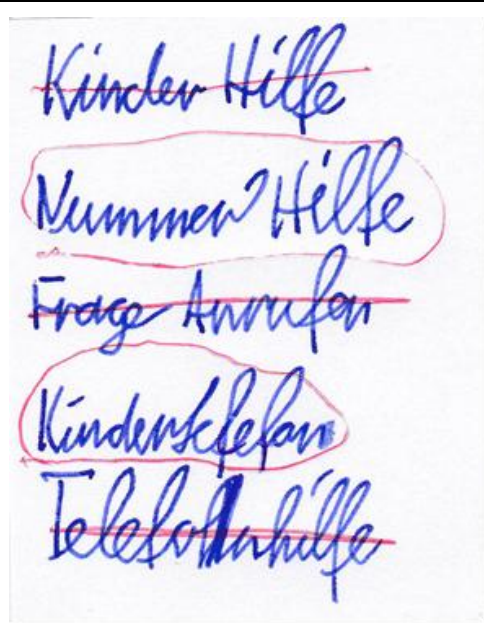 Kinder Hilfe
Nummer Hilfe
Frage Anrufen
Kindertelefon
Telefonhilfe